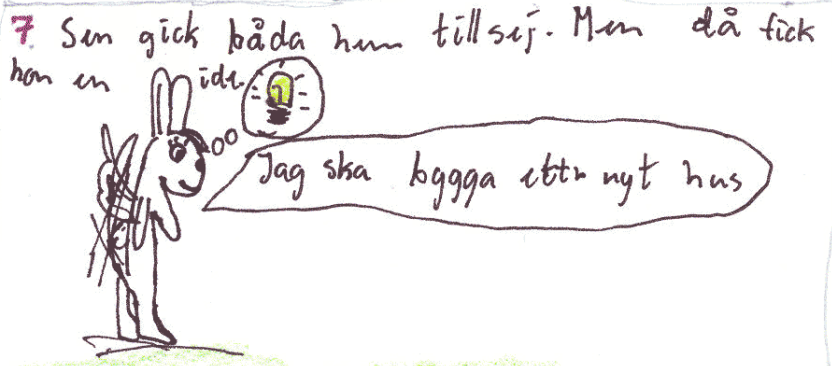 7. Sen gick båda hem till sej. Men då fick
hon en ide.
Jag ska bygga ett nyt hus